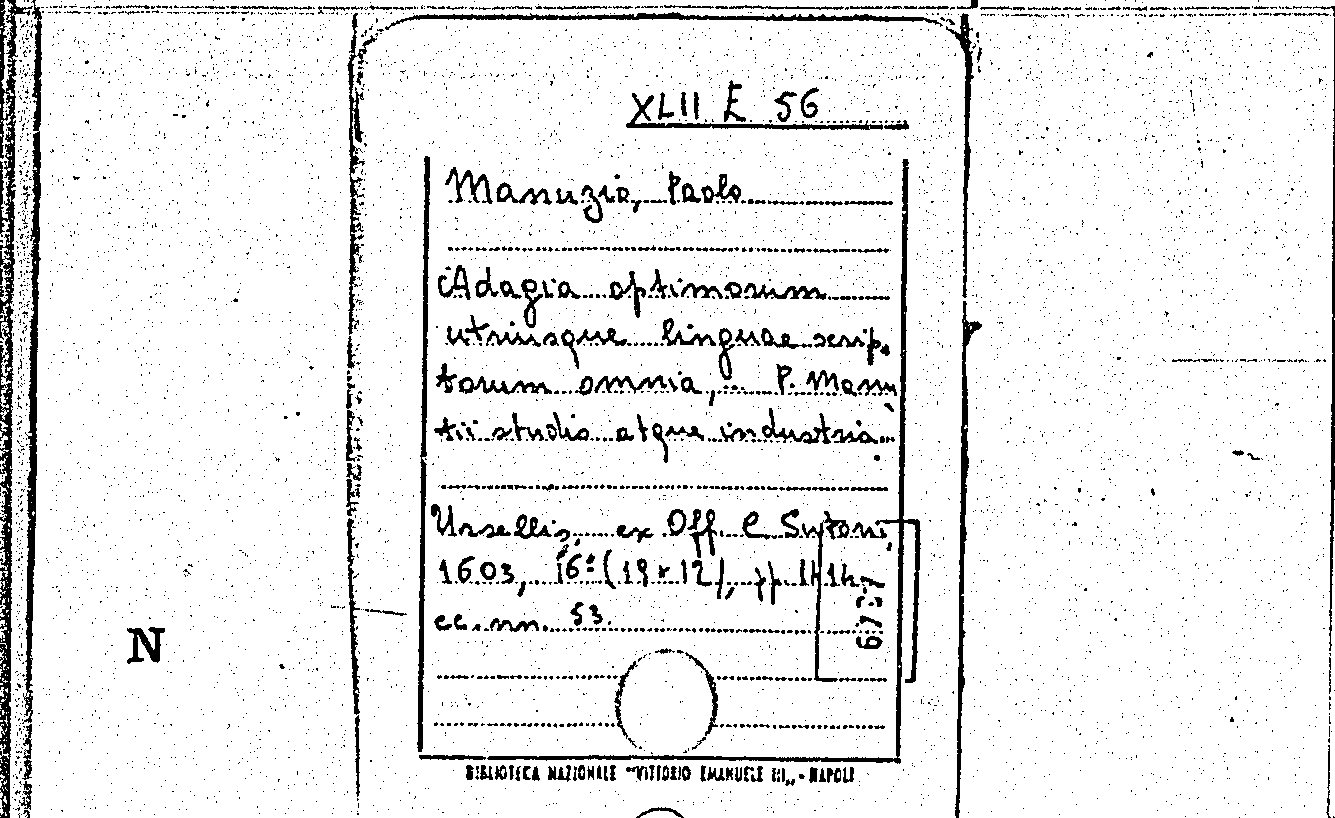 XLII E 56
Manuzio, Paolo
Adagia optimorum
utriusque linguae scrip.
torum omnia, ... P. Manu
tii studio atque industria...
Ursellis, ex Off. C Sutorii,
1603, 16° (19 x 12), pp.
cc. nn. 53.
N
BIBLIOTECA NAZIONALE "VITTORIO EMANUELE III„ - NAPOLI